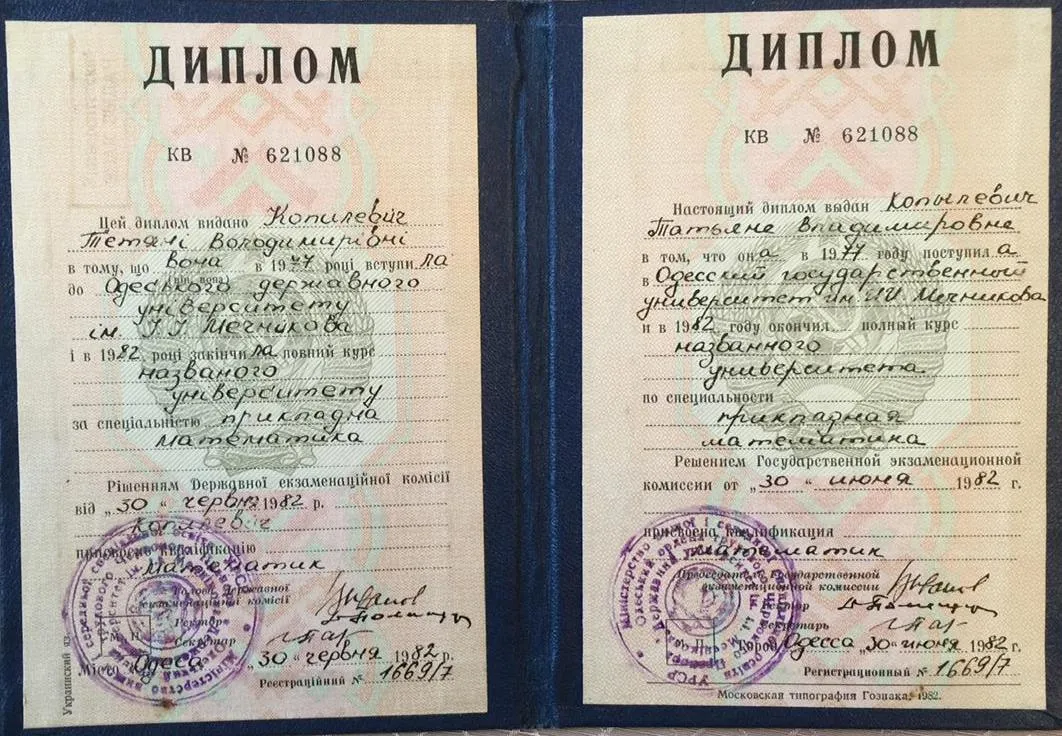 ДИПЛОМ
КВ № 621088
Цей диплом видано Копилевич
Тетяні Володимирівні
в тому, що вона в 1977 році вступила
(він, вона)
до Одеського державного
університету
ім. І.І. Мечникова
і в 1982 році закінчила повний курс
названого
університету
за спеціальністю прикладна
математика
Рішенням Державної екзаменаційної комісії
від „30“ червня 1982 р.
Копилевич
присвоєно кваліфікацію
математик
Голова Державної
екзаменаційної комісії
Ректор
Секретар
М. П.
Місто Одеса „30“ червня 1982 р.
Реєстраційний № 1669/7
Украинский яз.
ДИПЛОМ
КВ № 621088
Настоящий диплом выдан Копылевич
Татьяне Владимировне
в том, что она в 1977 году поступила
в Одесский государственный
университет им. И.И. Мечникова
и в 1982 году окончил полный курс
названного
университета
по специальности
прикладная
математика
Решением Государственной экзаменационной
комиссии от „30“ июня 1982 г.
присвоена квалификация
математик
Председатель Государственной
экзаменационной комиссии
Ректор
Секретарь
М. П.
Город Одесса „30“ июня 1982 г.
Регистрационный № 1669/7
Московская типография Гознака. 1982.